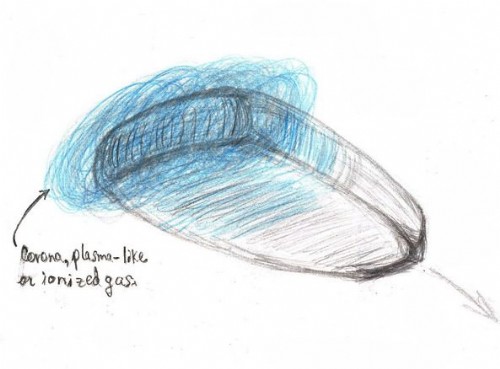 Corona, plasma-like
or ionized gas.